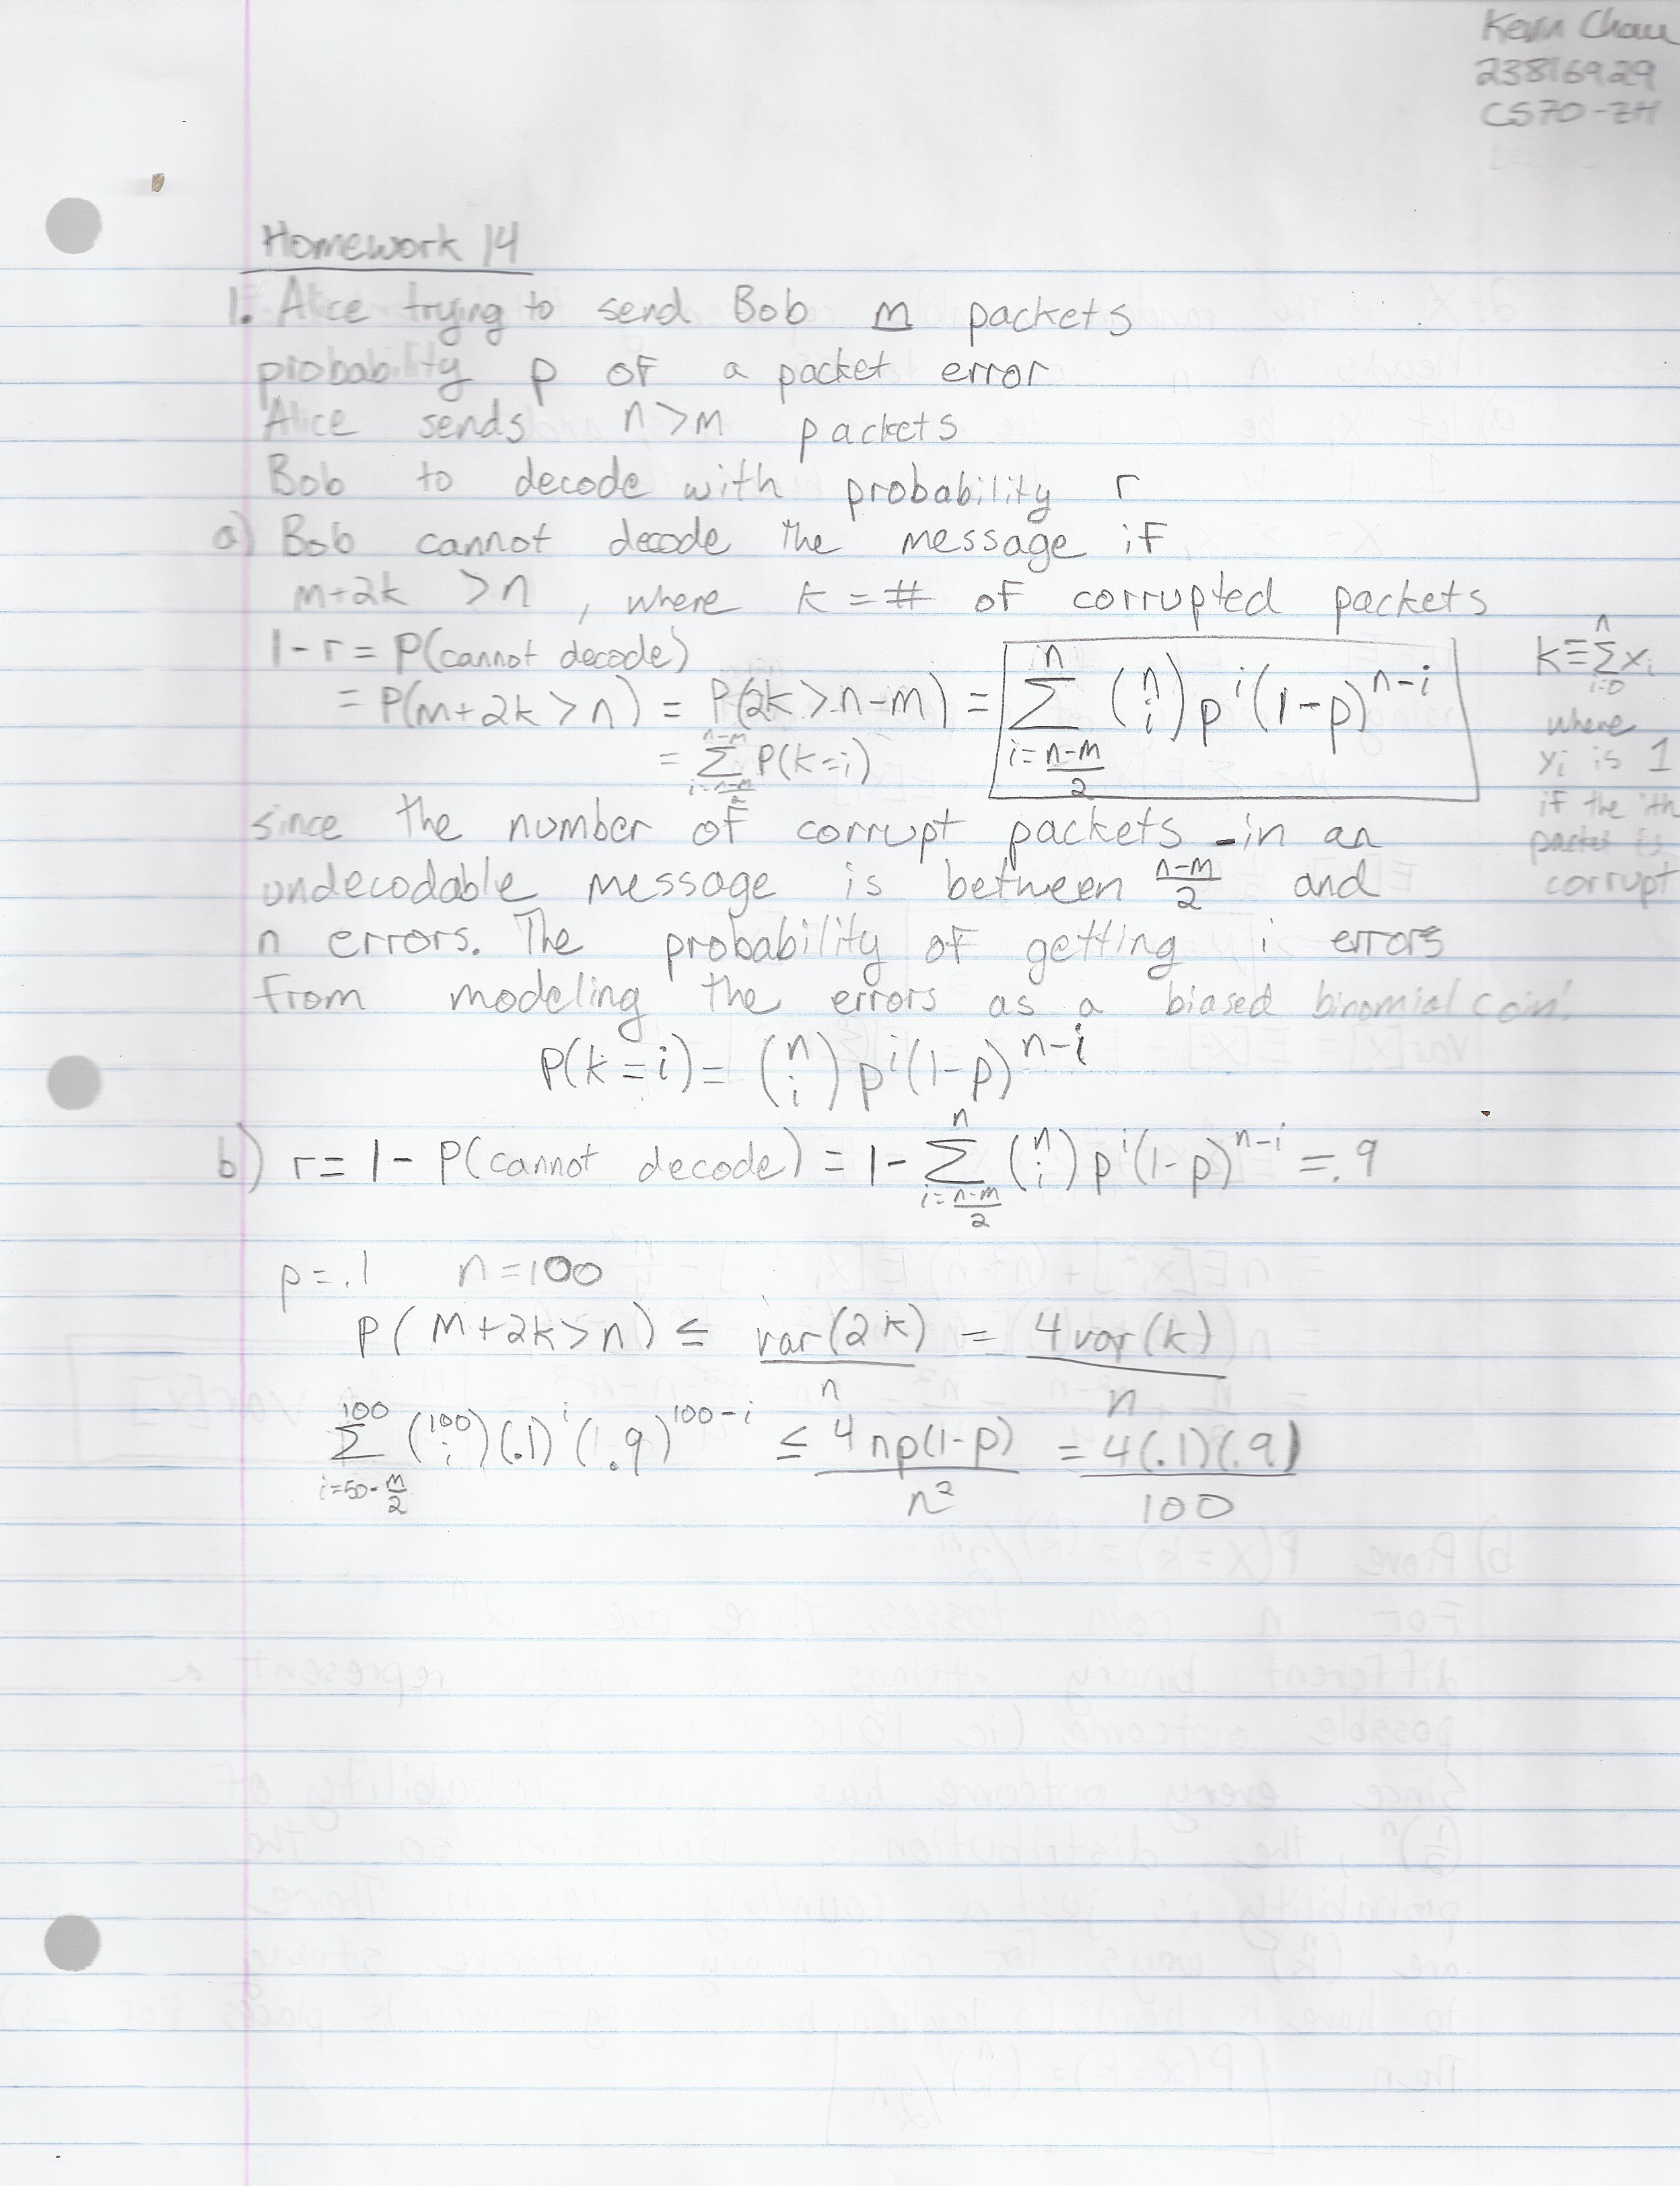 Kevin Chau
23816929
CS70-ZH
Homework 14
1. Alice trying to send Bob m packets
probability p of a packet error
Alice sends n>m packets
Bob to decode with probability r
a) Bob cannot decode the message if
m+2k >n , where k = # of corrupted packets
1-r = P(cannot decode)
= P(m+2k>n) = P(2k>n-m) = \sum_{i=\frac{n-m}{2}}^{n} \binom{n}{i} p^i (1-p)^{n-i}
= \sum_{i=\frac{n-m}{2}}^{n-m} P(k=i)
k≡\sum_{i=0}^{n} x_i
where
y_i is 1
if the ith
packet is
corrupt
since the number of corrupt packets -in an
undecodable message is between \frac{n-m}{2} and
n errors. The probability of getting i errors
from modeling the errors as a biased binomial coin:
P(k=i)= \binom{n}{i} p^i (1-p)^{n-i}
b) r= 1- P(cannot decode) = 1- \sum_{i=\frac{n-m}{2}}^{n} \binom{n}{i} p^i (1-p)^{n-i} = .9
p=.1 n=100
P(m+2k>n) ≤ \frac{var(2k)}{n} = \frac{4var(k)}{n}
\sum_{i=50-\frac{m}{2}}^{100} \binom{100}{i} (.1)^i (.9)^{100-i} ≤ \frac{4np(1-p)}{n^2} = \frac{4(.1)(.9)}{100}